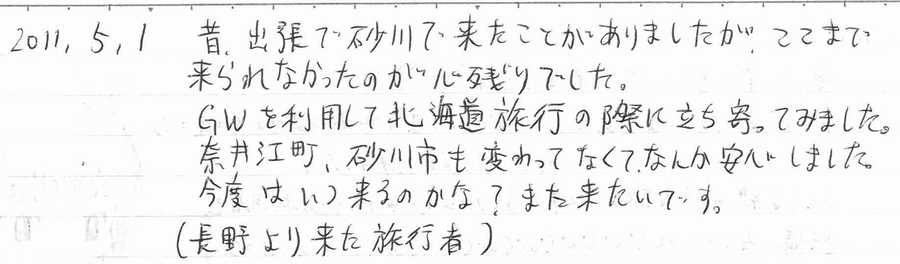 2011, 5, 1 昔、出張で砂川で来たことがありましたが、ここまで
来られなかったのが心残りでした。
GWを利用して北海道旅行の際に立ち寄ってみました。
奈井江町、砂川市も変わってなくてなんか安心しました。
今度はいつ来るのかな?また来たいです。
(長野より来た旅行者)